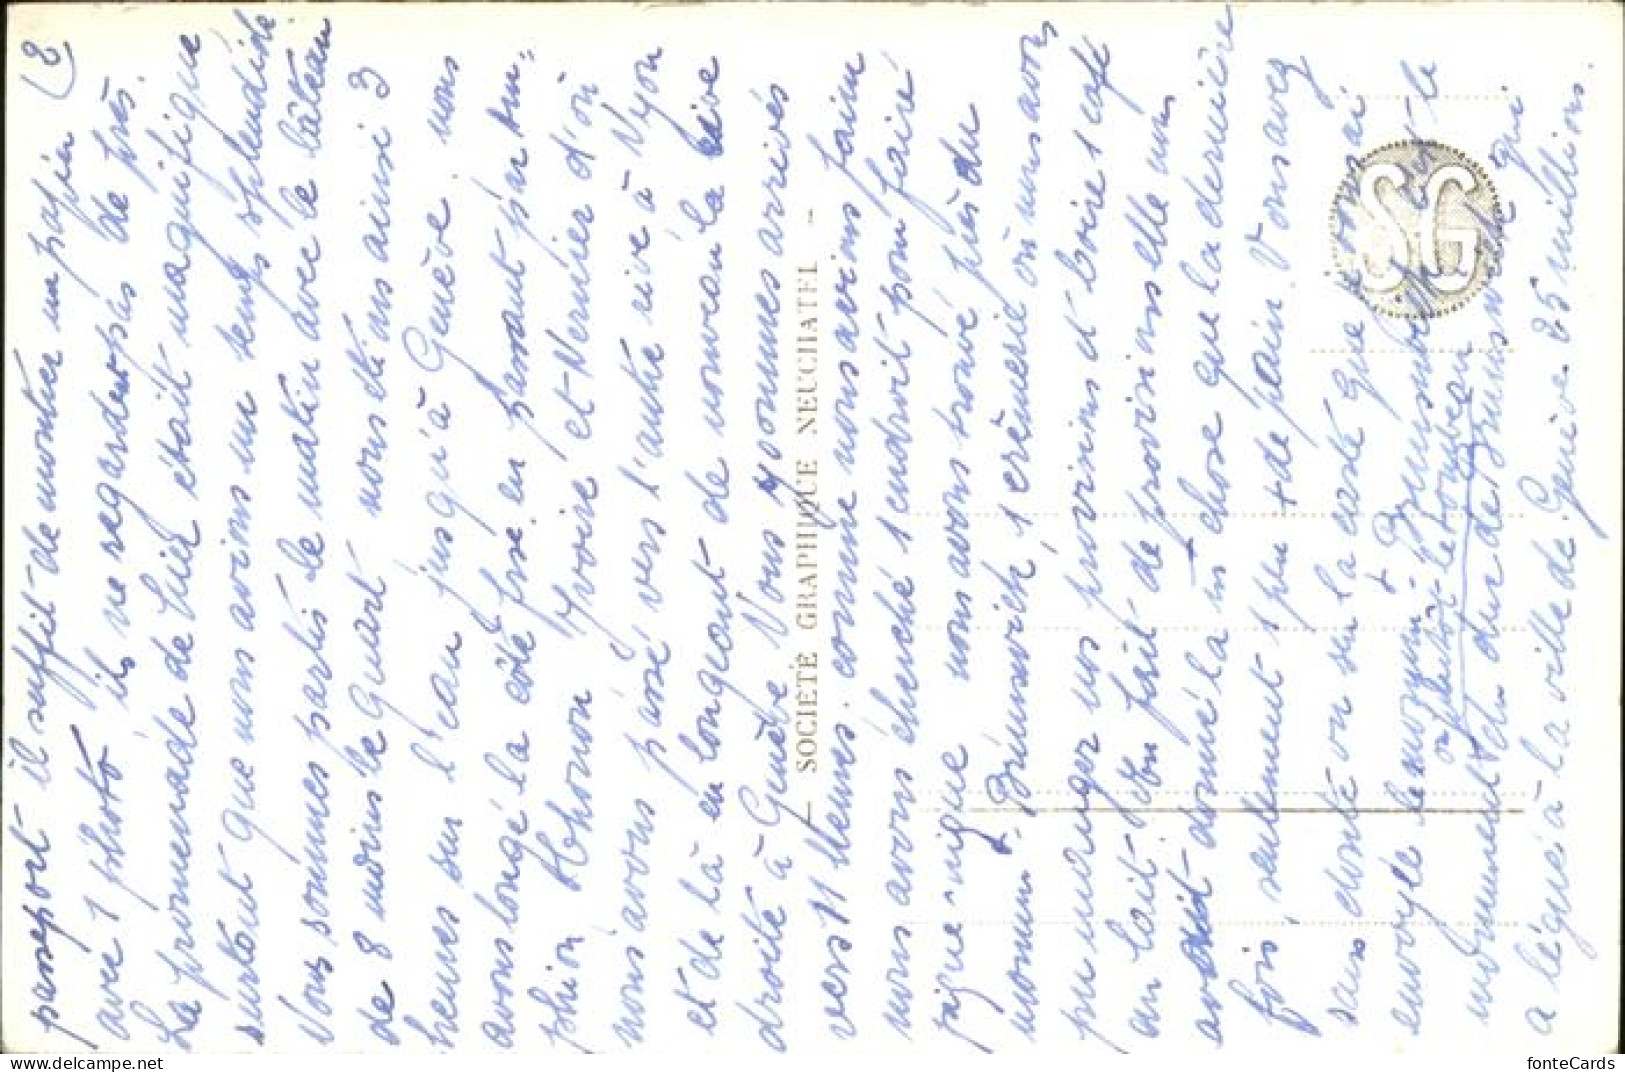 (2
passeport il suffit de montrer un papier
avec 1 photo ils ne regardent pas de près.
La promenade de hier était magnifique
surtout que nous avions un temps splendide
Nous sommes partis le matin avec le bâteau
de 8 moins le quart nous étions ainsi 3
heures sur l'eau jusqu'à Genève. nous
avons longé la côte frse. en passant par
phion Thonon Yvoire et Nernier d'où
nous avons passé vers l'autre rive à Nyon
et de là en longeant de nouveau la rive
droite à Genève Nous sommes arrivés
vers 11 heures. comme nous avions faim
nous avons cherché 1 endroit pour faire
pique-nique nous avons trouvé près du
monum. Brunswick 1 crèmerie où nous avons
pu manger nos provisions et boire 1 café
au lait. On fait de provisions elle nous
avait donné la m̂ chose que la dernière
fois, seulement 1 peu + de pain. Vous avez
sans doute vu sur la carte que je vous ai
envoyée le monum. Brunswick
ou plutôt le tombeau
monument du duc de Brunswick qui
a légué à la ville de Genève 25 millions.
SOCIÉTÉ GRAPHIQUE NEUCHATEL
SG
fonteCards